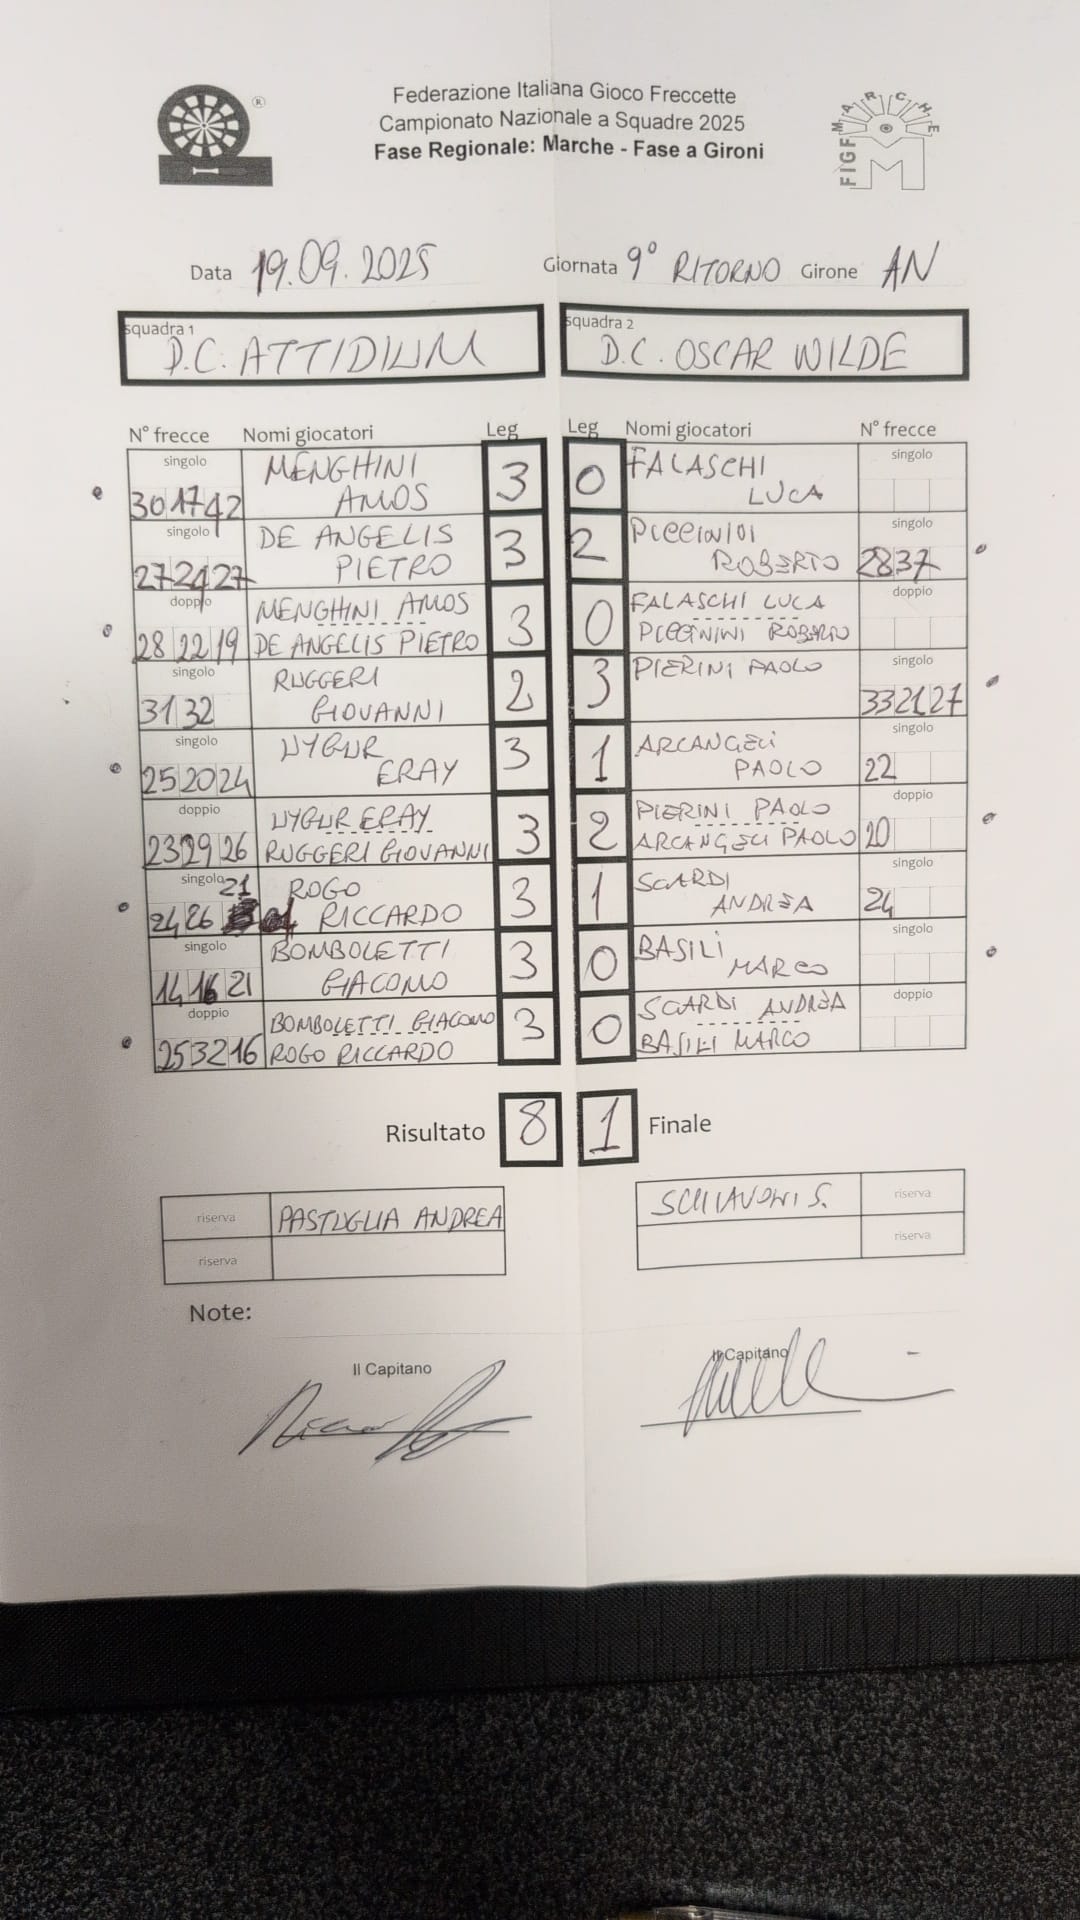 ®
Federazione Italiana Gioco Freccette
Campionato Nazionale a Squadre 2025
Fase Regionale: Marche - Fase a Gironi
FIGF MARCHE
M
Data 19.09.2025 Giornata 9° RITORNO Girone AN
squadra 1 squadra 2
D.C. ATTIDIUM D.C. OSCAR WILDE
N° frecce Nomi giocatori Leg Leg Nomi giocatori N° frecce
singolo MENGHINI FALASCHI singolo
30 17 42 AMOS 3 0 LUCA
singolo DE ANGELIS PICCININI singolo
27 24 27 PIETRO 3 2 ROBERTO 28 37
doppio MENGHINI AMOS FALASCHI LUCA doppio
28 22 19 DE ANGELIS PIETRO 3 0 PICCININI ROBERTO
singolo RUGGERI PIERINI PAOLO singolo
31 32 GIOVANNI 2 3 33 21 27
singolo UYGUR ARCANGELI singolo
25 20 24 ERAY 3 1 PAOLO 22
doppio UYGUR ERAY PIERINI PAOLO doppio
23 29 26 RUGGERI GIOVANNI 3 2 ARCANGELI PAOLO 20
singolo 21 ROGO SGARDI singolo
24 26 RICCARDO 3 1 ANDREA 24
singolo BOMBOLETTI BASILI singolo
14 16 21 GIACOMO 3 0 MARCO
doppio BOMBOLETTI GIACOMO SGARDI ANDREA doppio
25 32 16 ROGO RICCARDO 3 0 BASILI MARCO
Risultato 8 1 Finale
riserva PASTUGLIA ANDREA SCHIAVONI S. riserva
riserva riserva
Note:
Il Capitano Il Capitano